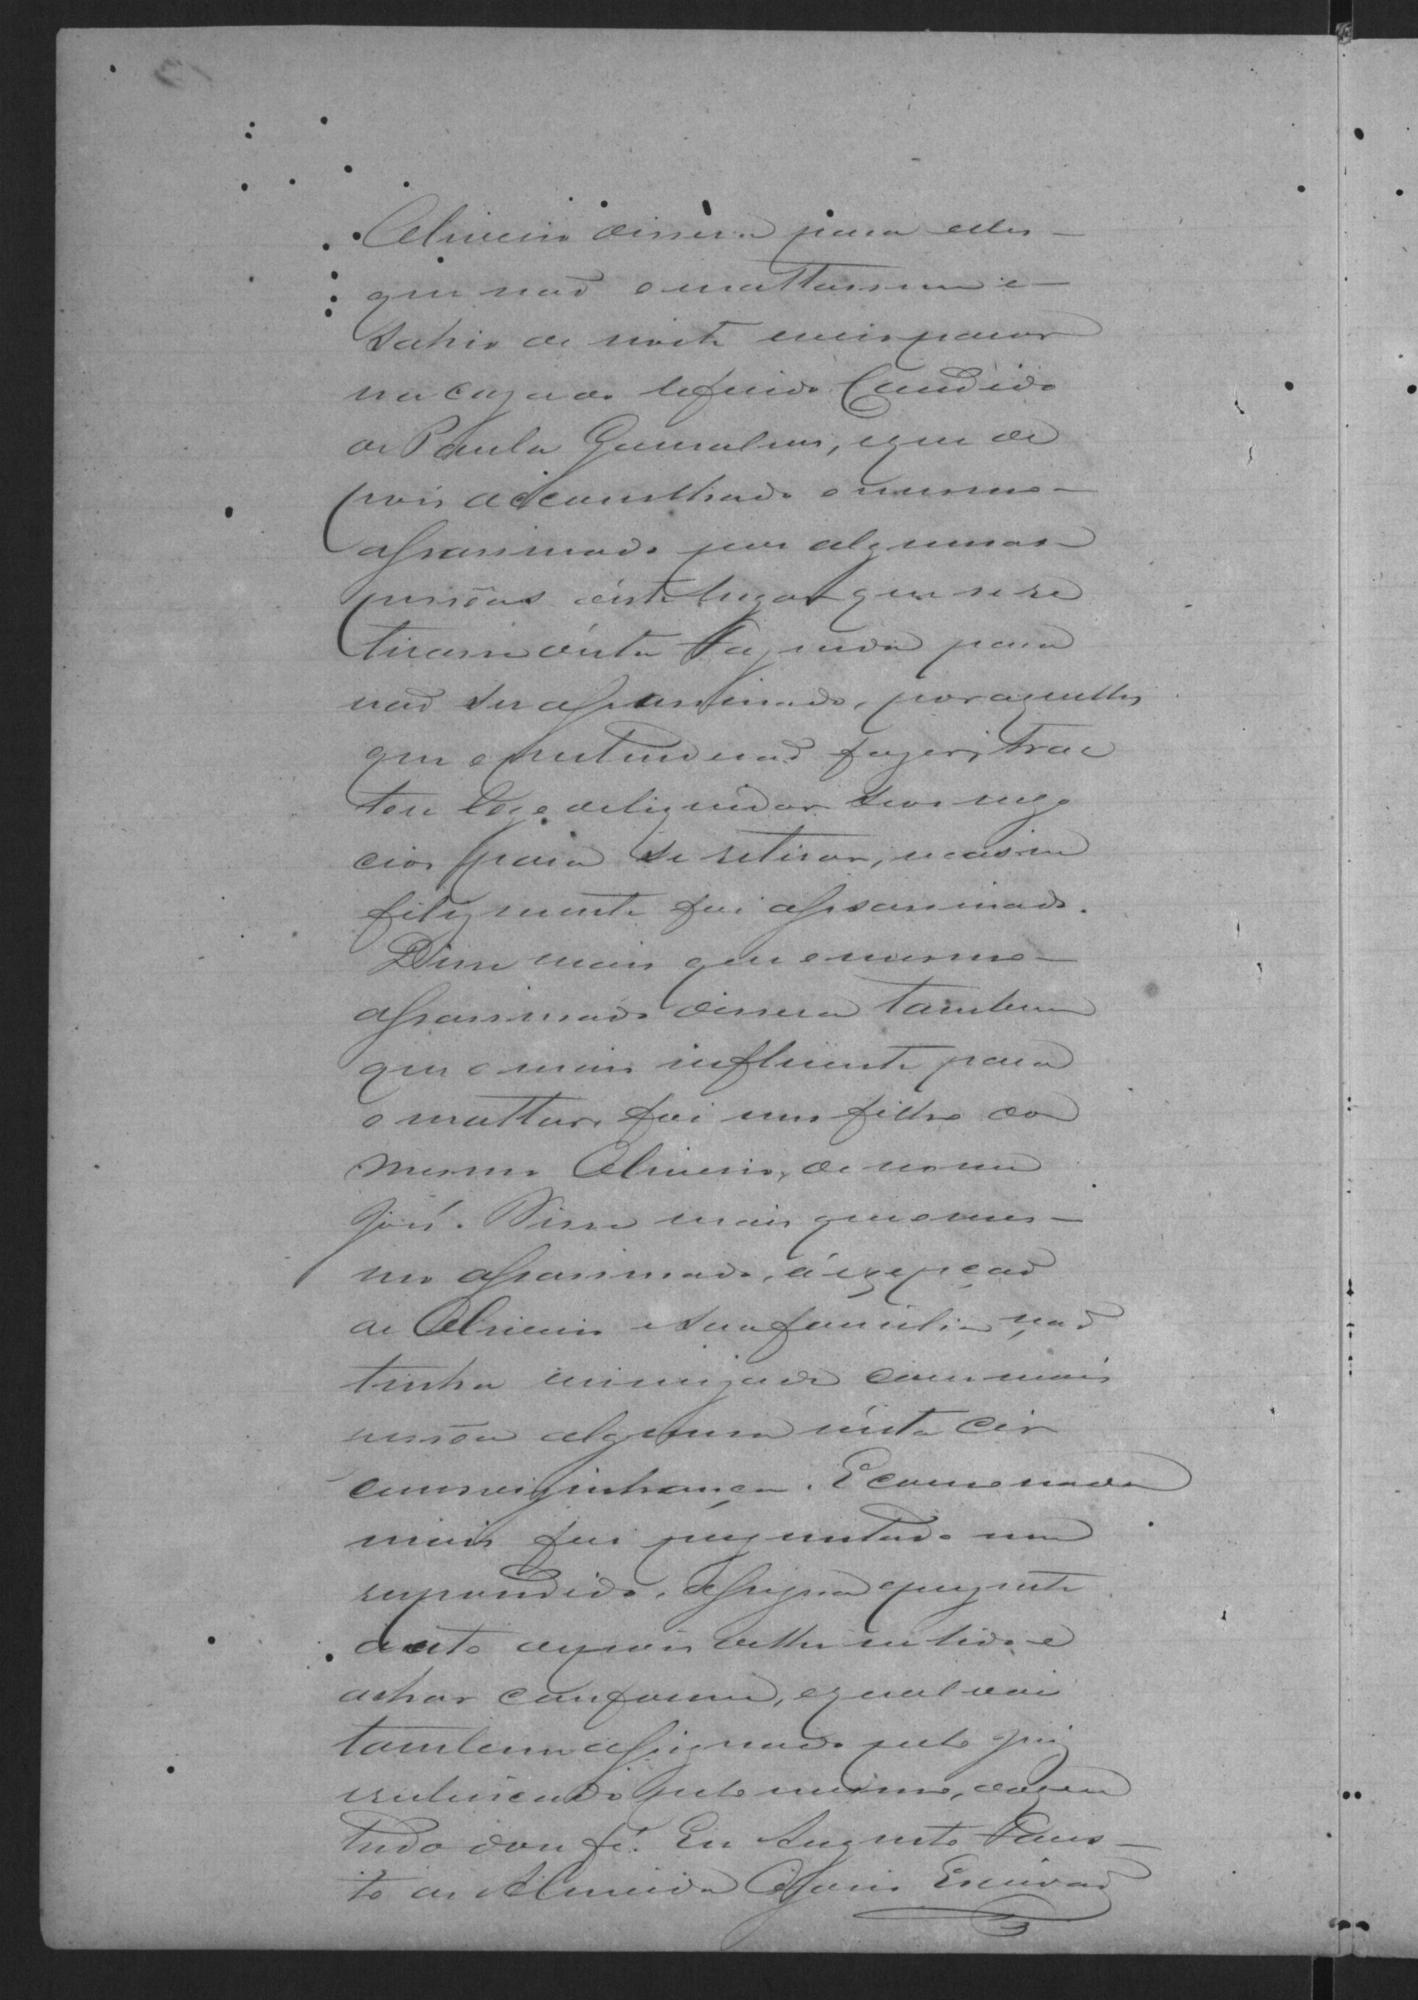 Oliveira dissera para elles
que não o mattassem e
sahio de noite e veio parar
na caza do referido Candido
de Paula Gonsalves, e que de
pois acconselhado o mesmo
assassinado por algumas
pessôas d'este lugar que se re
tirasse d'esta Fazenda para
não ser assassinado, por aquelles
que o pretendendo fazer, trac
tou logo de liquidar seos nego
cios para se retirar, mas in
felizmente foi assassinado.
Disse mais que o mesmo
assassinado dissera tambem
que o mais influente para
o mattar foi um filho do
mesmo Oliveira, de nome
José. Disse mais que o mes
mo assassinado, á excepção
de Oliveira e sua familia não
tinha inimizade com mais
pessôa alguma n'esta cir
cumvizinhança. E como nada
mais foi perguntado nem
respondido, assigna o prezente
auto depois de lhe ser lido e
achar conforme, o qual vai
tambem assignado pelo Juiz
rubricado pelo mesmo, do que
tudo dou fé. Eu Augusto Faus
to de Almeida Escrivão